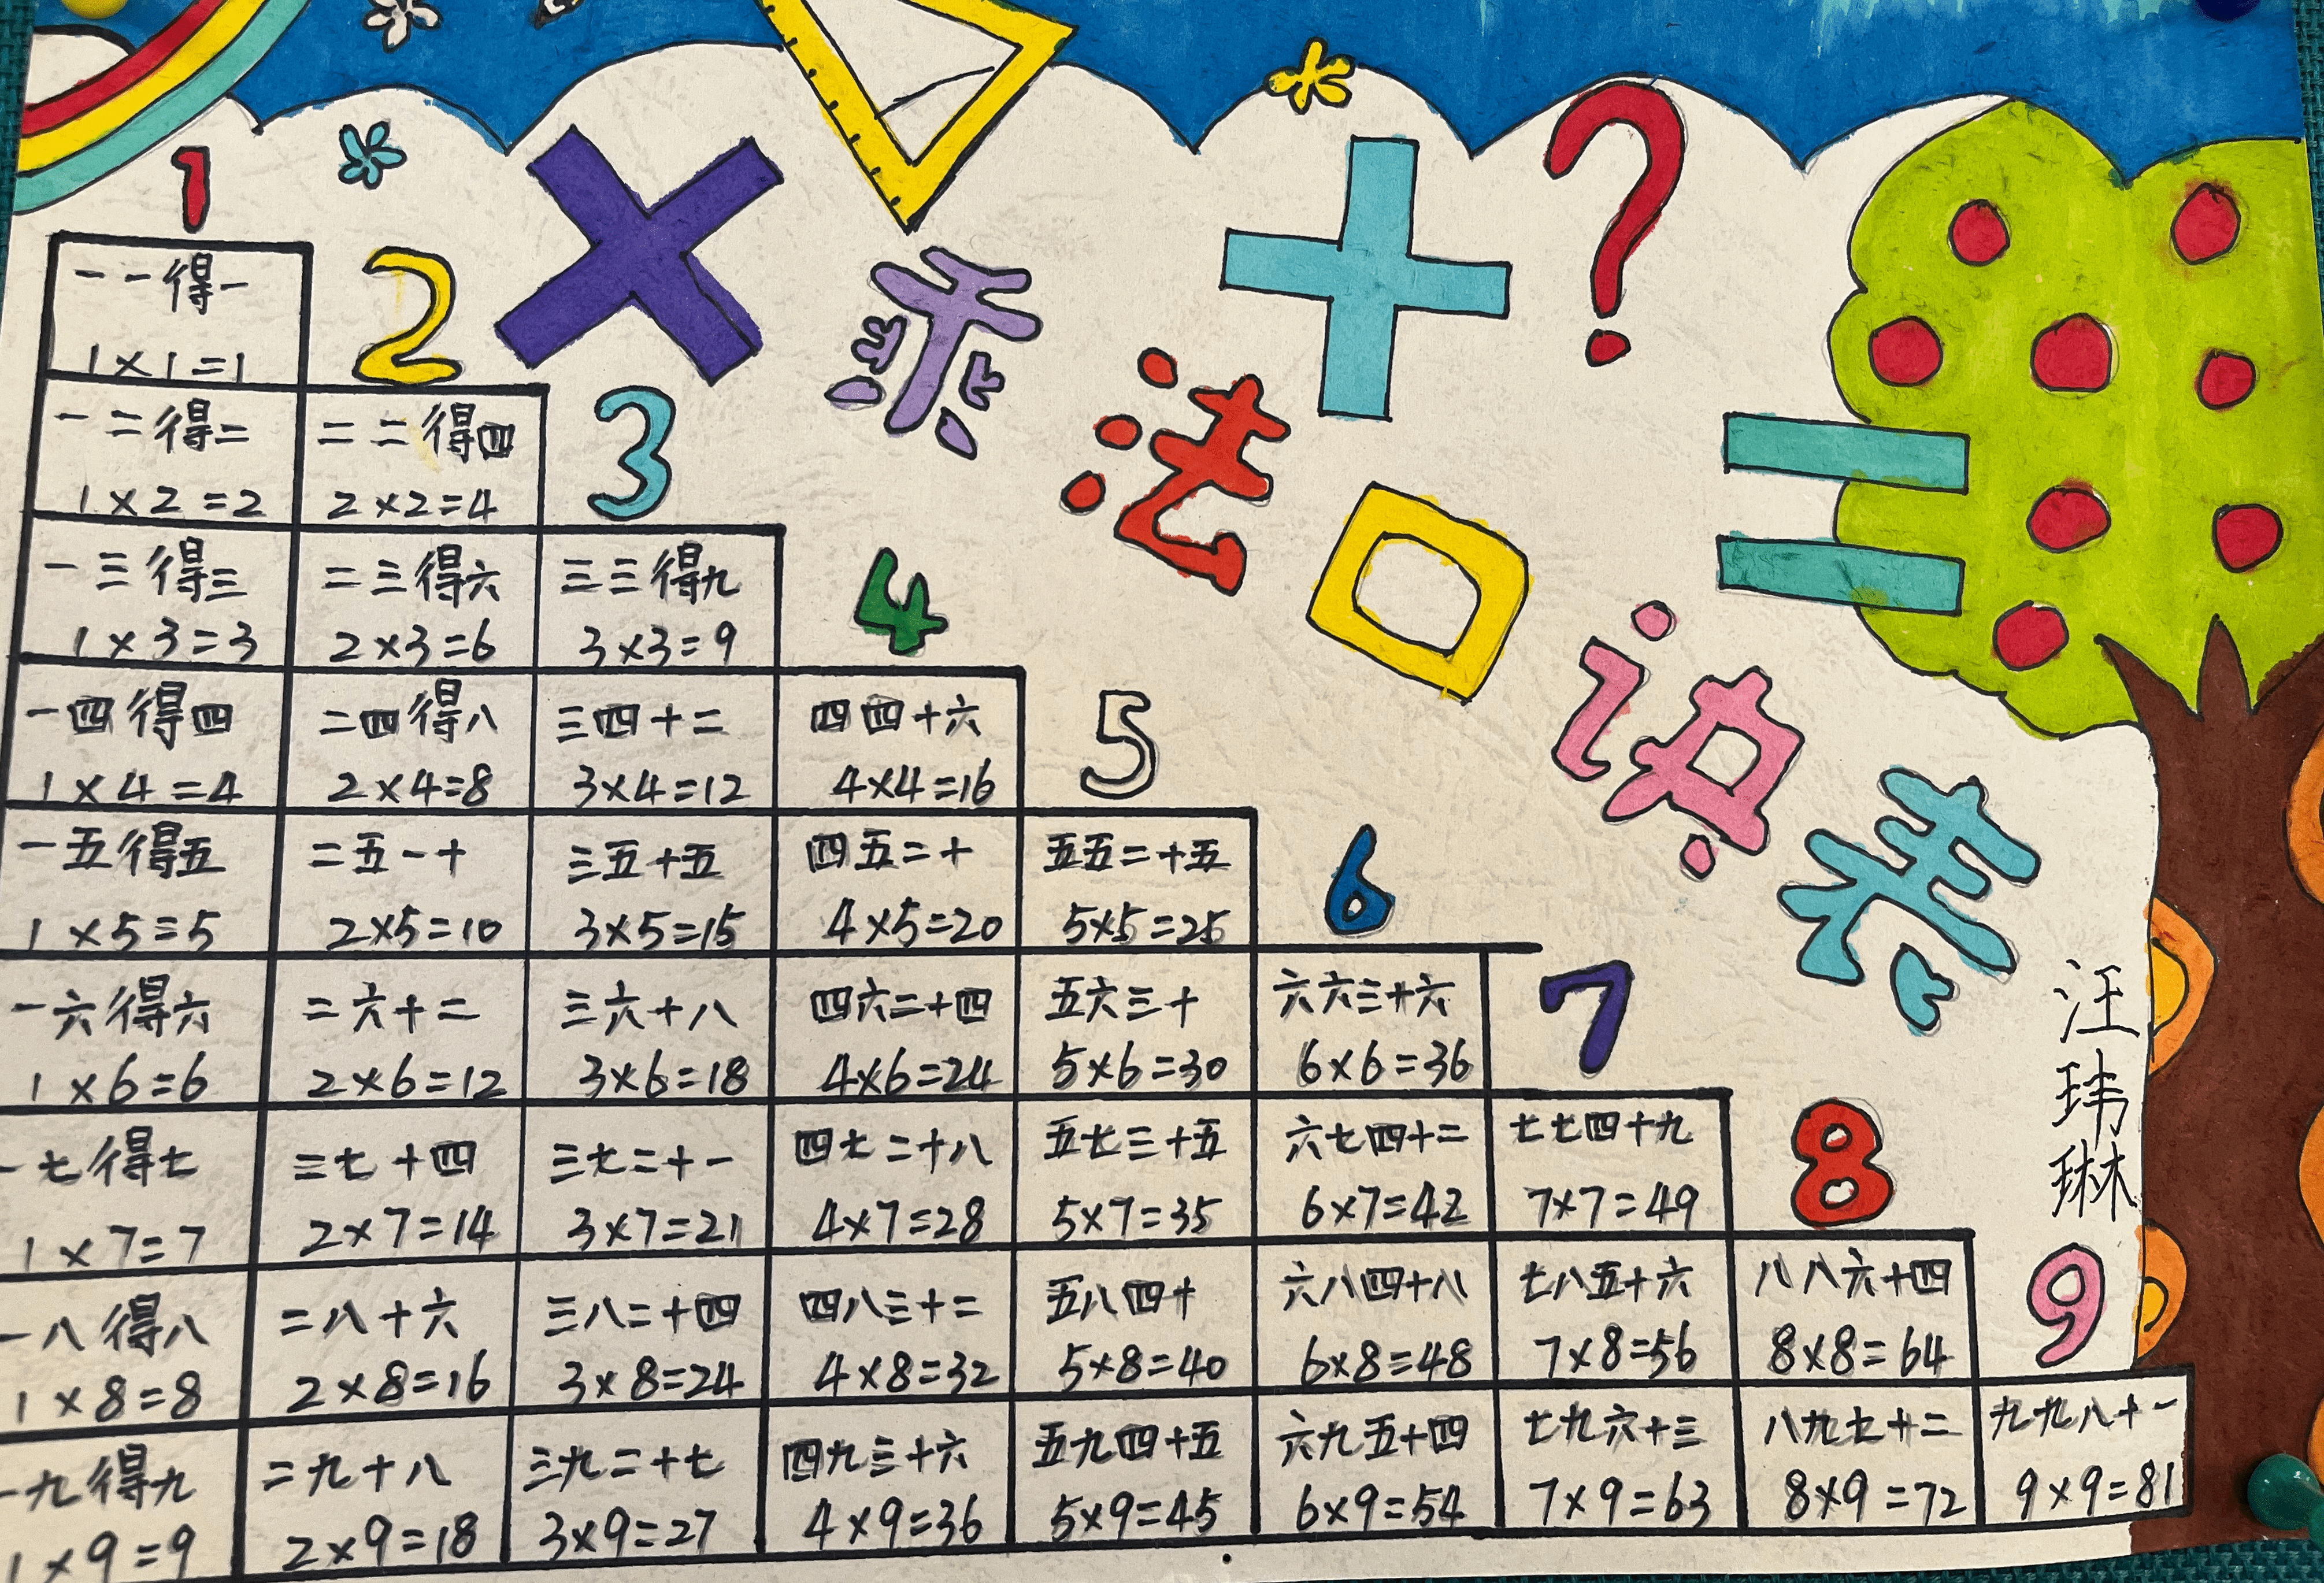 乘法口诀表
× + ? =
1
一一得一
1×1=1
2
一二得二 二二得四
1×2=2 2×2=4
3
一三得三 二三得六 三三得九
1×3=3 2×3=6 3×3=9
4
一四得四 二四得八 三四十二 四四十六
1×4=4 2×4=8 3×4=12 4×4=16
5
一五得五 二五一十 三五十五 四五二十 五五二十五
1×5=5 2×5=10 3×5=15 4×5=20 5×5=25
6
一六得六 二六十二 三六十八 四六二十四 五六三十 六六三十六
1×6=6 2×6=12 3×6=18 4×6=24 5×6=30 6×6=36
7
一七得七 二七十四 三七二十一 四七二十八 五七三十五 六七四十二 七七四十九
1×7=7 2×7=14 3×7=21 4×7=28 5×7=35 6×7=42 7×7=49
8
一八得八 二八十六 三八二十四 四八三十二 五八四十 六八四十八 七八五十六 八八六十四
1×8=8 2×8=16 3×8=24 4×8=32 5×8=40 6×8=48 7×8=56 8×8=64
9
一九得九 二九十八 三九二十七 四九三十六 五九四十五 六九五十四 七九六十三 八九七十二 九九八十一
1×9=9 2×9=18 3×9=27 4×9=36 5×9=45 6×9=54 7×9=63 8×9=72 9×9=81
汪玮琳